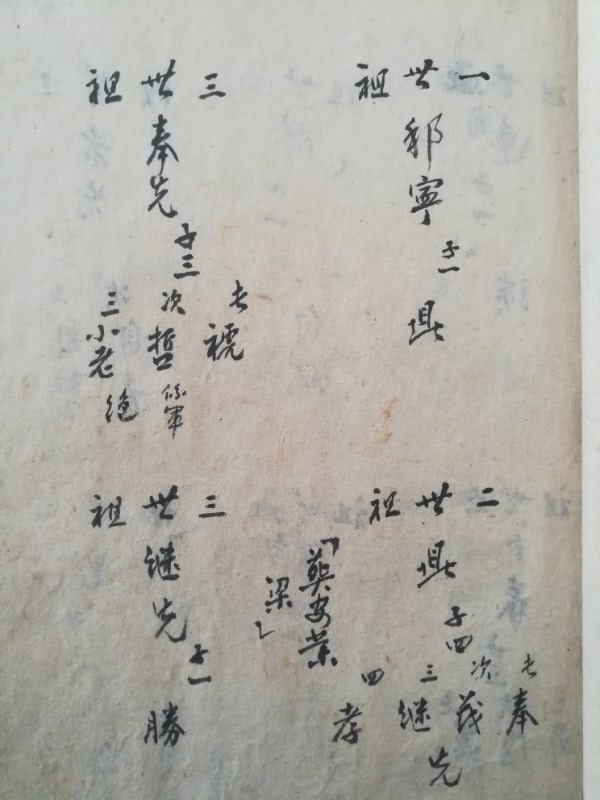 一世祖
寧 子一
三世祖
奉先 子三
長
次哲 係軍
三小老 绝
二世祖
子四
長奉
次茂
三继先
四孝
安業
梁
三世祖
继先 子一
勝